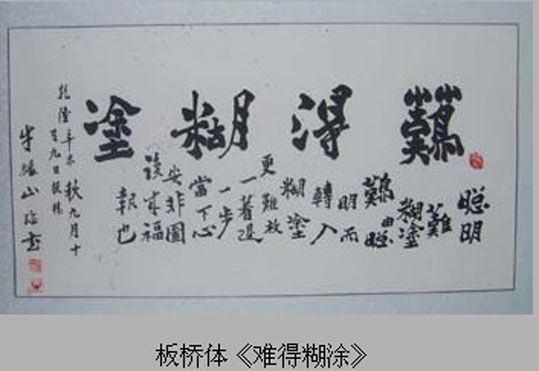 難得糊塗
聰明
難
糊塗
難由聰
明而
轉入
糊塗
更難放
一着退
一步
當下心
安非圖
後來福
報也
乾隆辛未秋九月十
有九日板橋
山臨書
板桥体《难得糊涂》